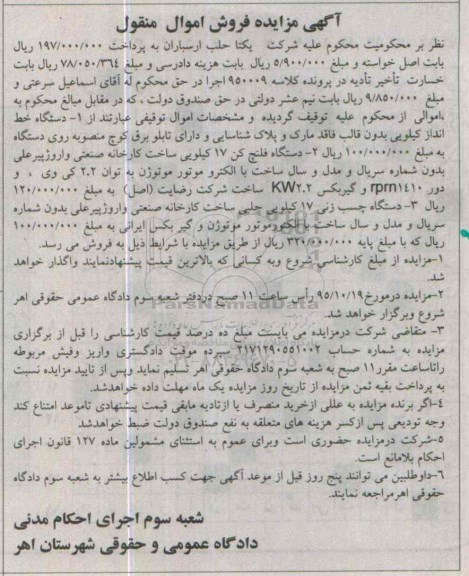 آگهی مزایده فروش اموال منقول
نظر بر محکومیت محکوم علیه شرکت یکتا حلب ارسباران به پرداخت ۱۹۷/۰۰۰/۰۰۰ ریال
بابت اصل خواسته و مبلغ ۵/۹۰۰/۰۰۰ ریال بابت هزینه دادرسی و مبلغ ۷۸/۰۵۰/۳۶۴ ریال بابت
خسارت تأخیر تأدیه در پرونده کلاسه ۹۵۰۰۰۹ اجرا در حق محکوم له آقای اسماعیل سرعتی و
مبلغ ۹/۸۵۰/۰۰۰ ریال بابت نیم عشر دولتی در حق صندوق دولت ، که در مقابل مبالغ محکوم به
،اموالی از محکوم علیه توقیف گردیده و مشخصات اموال توقیفی عبارتند از ۱- دستگاه خط
انداز کیلویی بدون قالب فاقد مارک و پلاک شناسایی و دارای تابلو برق کوچ منصوبه روی دستگاه
به مبلغ ۱۰۰/۰۰۰/۰۰۰ ریال ۲- دستگاه فلنچ کن ۱۷ کیلویی ساخت کارخانه صنعتی واروژپیرعلی
بدون شماره سریال و مدل و سال ساخت با الکترو موتور موتوژن به توان ۲.۲ کی وی ، و
دور rpm۱٤۱۰ و گیربکس KW۲.۲ ساخت شرکت رضایت (اصل) به مبلغ ۱۲۰/۰۰۰/۰۰۰
ریال ۳- دستگاه چسب زنی ۱۷ کیلویی حلبی ساخت کارخانه صنعتی واروژپیرعلی بدون شماره
سریال و مدل و سال ساخت با الکتورموتور موتوژن و گیر بکس ایرانی به مبلغ ۱۰۰/۰۰۰/۰۰۰
ریال که با مبلغ پایه ۳۲۰/۰۰۰/۰۰۰ ریال از طریق مزایده با شرایط ذیل به فروش می رسد.
۱-مزایده از مبلغ کارشناسی شروع وبه کسانی که بالاترین قیمت پیشنهادنمایند واگذار خواهد
شد.
۲-مزایده درمورخ۹۵/۱۰/۱۹ رأس ساعت ۱۱ صبح دردفتر شعبه سوم دادگاه عمومی حقوقی اهر
شروع وبرگزار خواهد شد.
۳- متقاضی شرکت درمزایده می بایست مبلغ ده درصد قیمت کارشناسی را قبل از برگزاری
مزایده به شماره حساب ۲۱۷۱۲۹۰۵۵۱۰۰۲ سپرده موقت دادگستری واریز وفیش مربوطه
راتاساعت مقرر۱۱ صبح به شعبه سوم دادگاه حقوقی اهر تسلیم نماید وپس از تایید مزایده نسبت
به پرداخت بقیه ثمن مزایده از تاریخ روز مزایده یک ماه مهلت داده خواهدشد.
٤-اگر برنده مزایده به عللی ازخرید منصرف یا ازتادیه مابقی قیمت پیشنهادی تاموعد امتناع کند
وجه تودیعی پس ازکسر هزینه های متعلقه به نفع صندوق دولت ضبط خواهدشد
۵-شرکت درمزایده حضوری است وبرای عموم به استثنای مشمولین ماده ۱۲۷ قانون اجرای
احکام بلامانع است.
۶-داوطلبین می توانند پنج روز قبل از موعد آگهی جهت کسب اطلاع بیشتر به شعبه سوم دادگاه
حقوقی اهرمراجعه نمایند.
شعبه سوم اجرای احکام مدنی
دادگاه عمومی و حقوقی شهرستان اهر